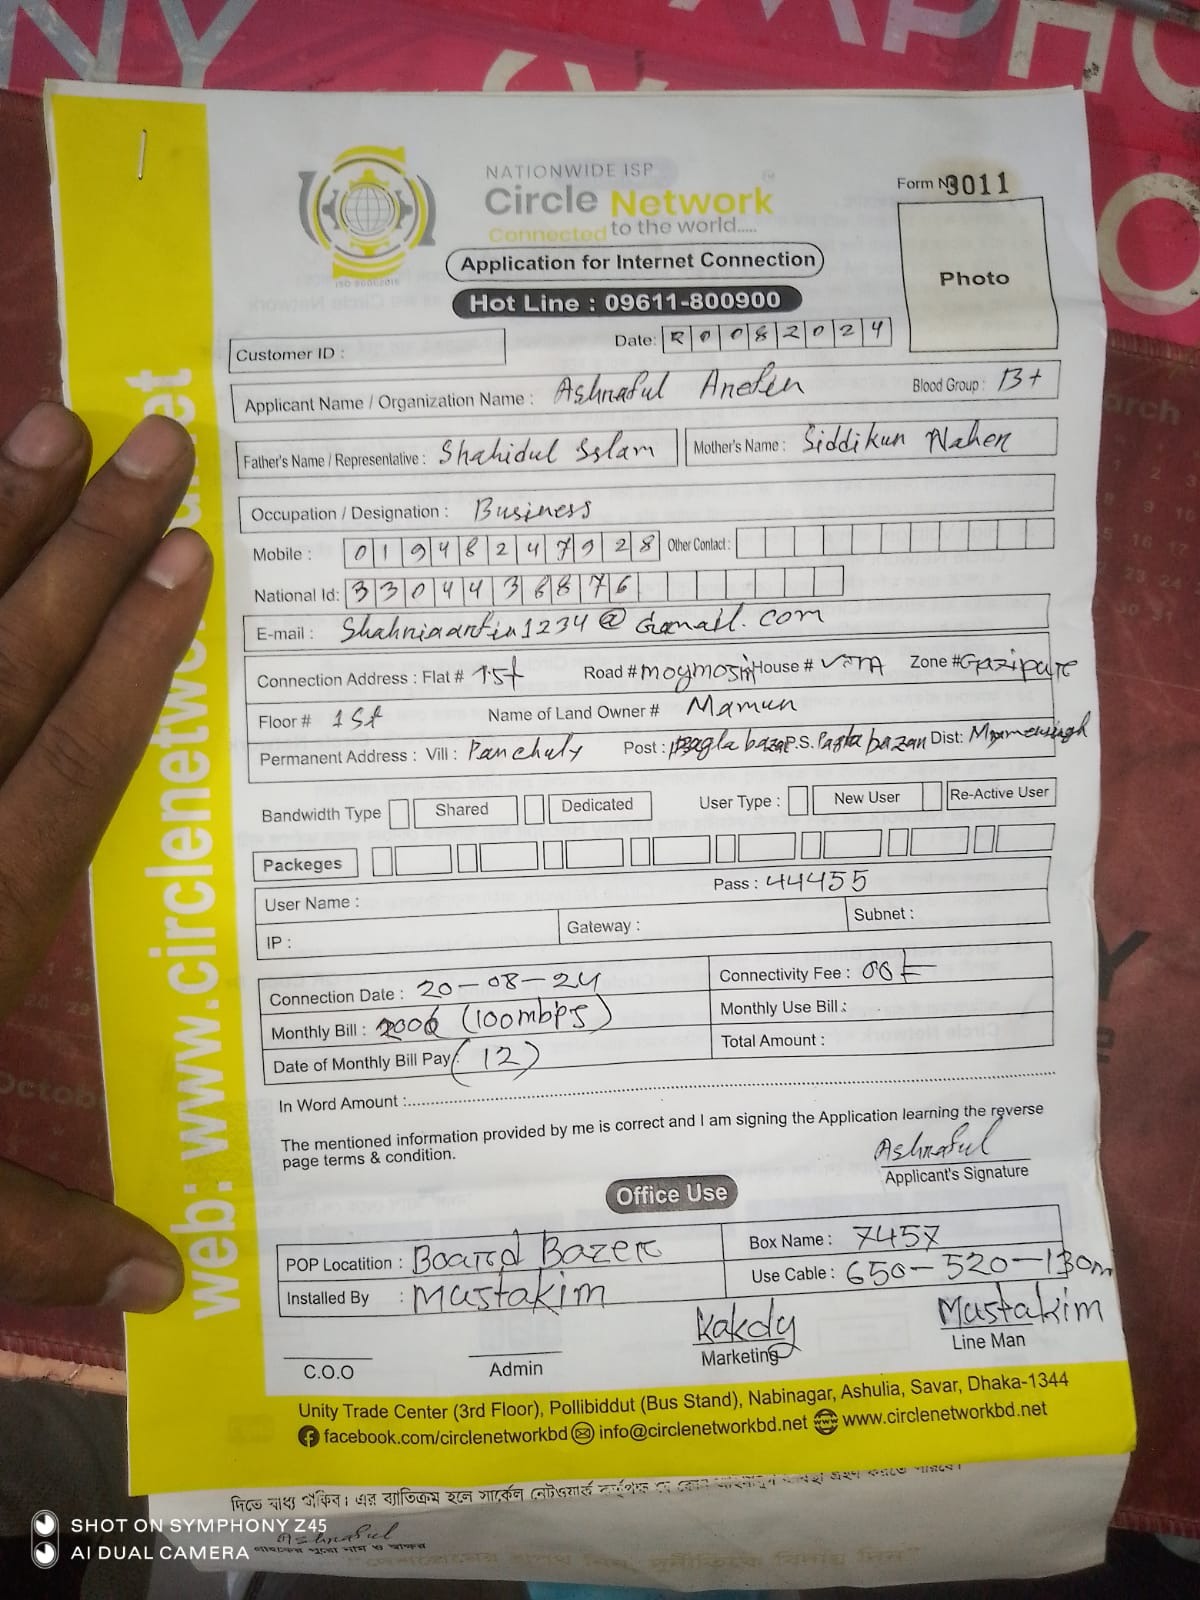 NY
SYMPHO
NATIONWIDE ISP
Circle Network
Connected to the world.....
ISO 9001:2015
Form No 3011
Application for Internet Connection
Photo
Hot Line : 09611-800900
Date: 20082024
Customer ID :
Applicant Name / Organization Name : Ashraful Arefin Blood Group : B+
Father's Name / Representative : Shahidul Islam Mother's Name : Siddikun Naher
Occupation / Designation : Business
Mobile : 01948247928 Other Contact :
National Id: 3304436876
E-mail : @Gmail.com
Connection Address : Flat # 1st Road # House # Zone # Gazipure
Floor # 1st Name of Land Owner # Mamun
Permanent Address : Vill : Panchuly Post : Pagla bazar P.S. Pagla bazar Dist: Mymensingh
Bandwidth Type Shared Dedicated User Type : New User Re-Active User
Packeges
User Name : Pass : 44455
IP : Gateway : Subnet :
Connection Date : 20-08-24 Connectivity Fee : 00
Monthly Bill : (100mbps) Monthly Use Bill :
Date of Monthly Bill Pay : (12) Total Amount :
In Word Amount :
The mentioned information provided by me is correct and I am signing the Application learning the reverse
page terms & condition.
Ashraful
Applicant's Signature
Office Use
POP Locatition : Board Bazer Box Name : 7457
Installed By : Mustakim Use Cable : 650-520-130m
Kakdy Mustakim
C.O.O Admin Marketing Line Man
Unity Trade Center (3rd Floor), Pollibiddut (Bus Stand), Nabinagar, Ashulia, Savar, Dhaka-1344
facebook.com/circlenetworkbd info@circlenetworkbd.net www.circlenetworkbd.net
web: www.circlenetwork.net
দিতে বাধ্য থাকিব। এর ব্যতিক্রম হলে সার্কেল নেটওয়ার্ক কর্তৃপক্ষ যে কোন আইনানুগ ব্যবস্থা গ্রহণ করতে পারবে।
Ashraful
SHOT ON SYMPHONY Z45
AI DUAL CAMERA